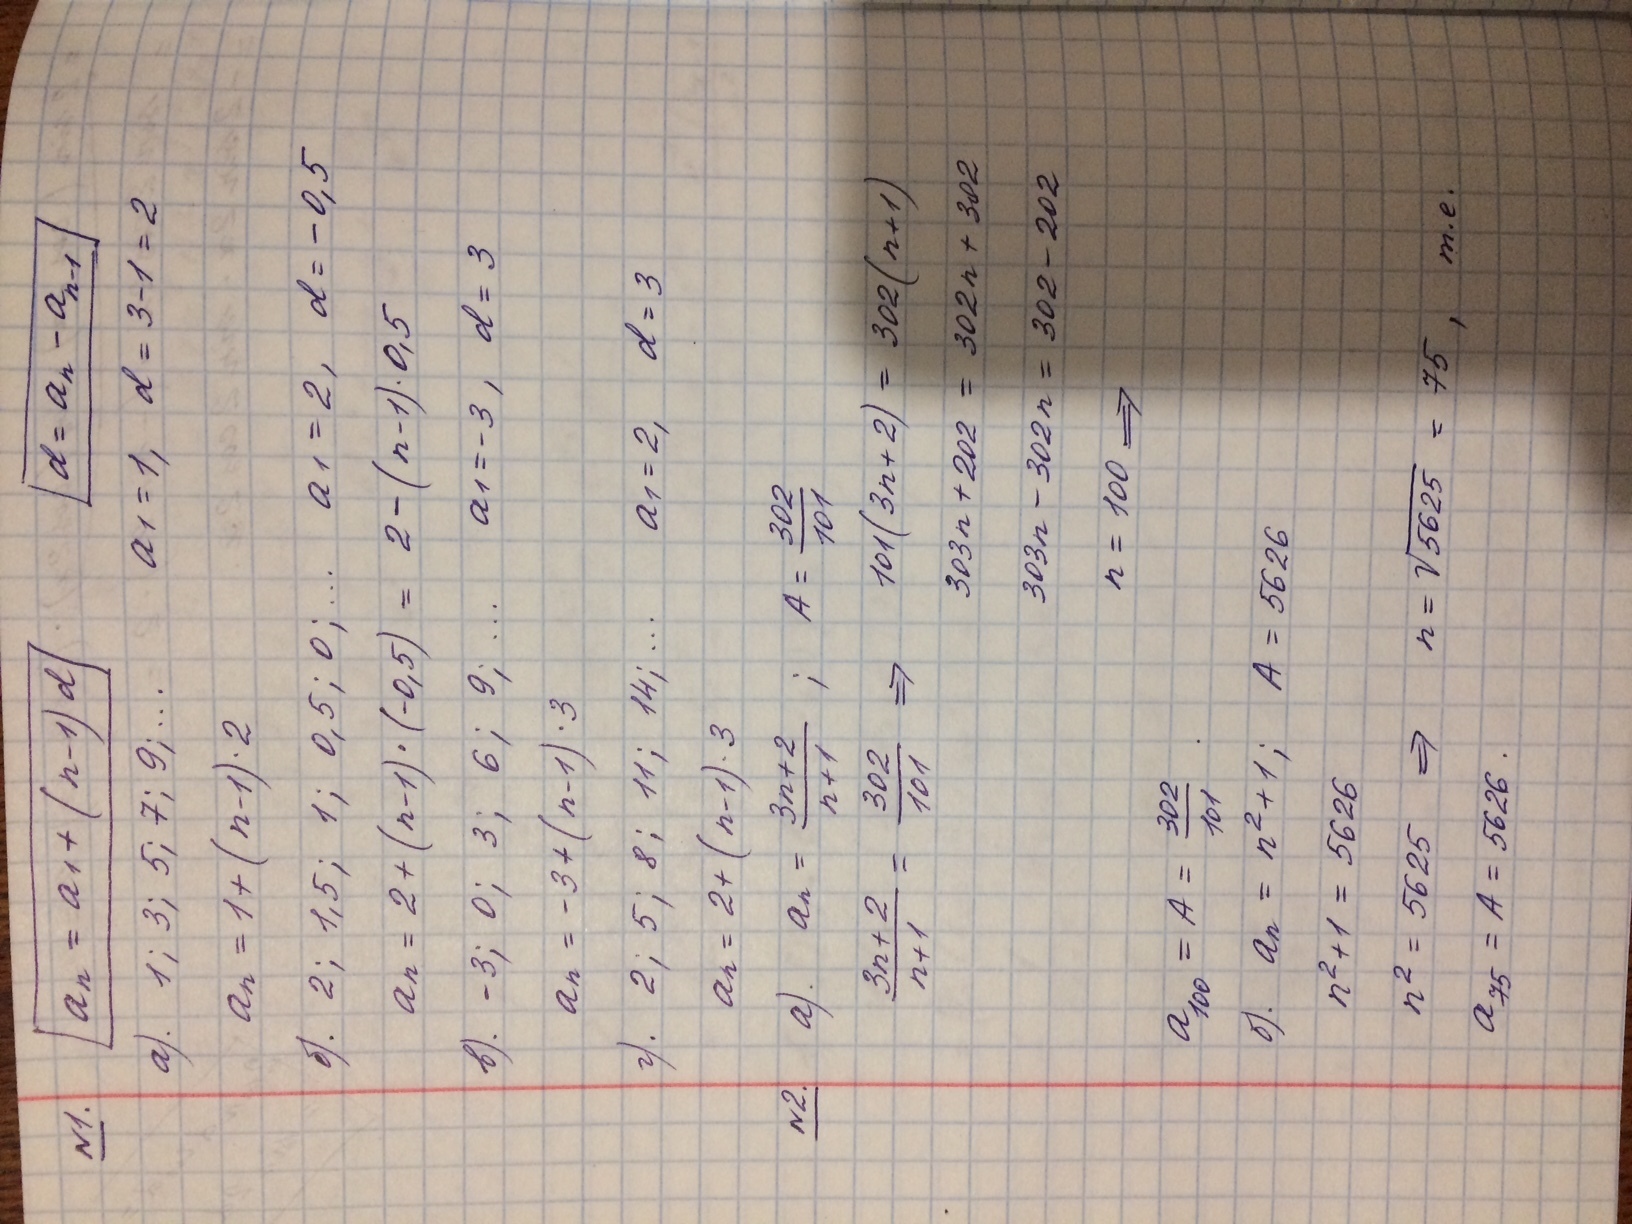 N1. aₙ = a₁ + (n-1)d d = aₙ - aₙ₋₁
а). 1; 3; 5; 7; 9; ... a₁ = 1, d = 3-1 = 2
aₙ = 1 + (n-1)·2
б). 2; 1,5; 1; 0,5; 0; ... a₁ = 2, d = -0,5
aₙ = 2 + (n-1)·(-0,5) = 2 - (n-1)·0,5
в). -3; 0; 3; 6; 9; ... a₁ = -3, d = 3
aₙ = -3 + (n-1)·3
г). 2; 5; 8; 11; 14; ... a₁ = 2, d = 3
aₙ = 2 + (n-1)·3
N2. а). aₙ = (3n+2)/(n+1) ; A = 302/101
(3n+2)/(n+1) = 302/101 ⇒ 101(3n+2) = 302(n+1)
303n + 202 = 302n + 302
303n - 302n = 302 - 202
n = 100 ⇒
a₁₀₀ = A = 302/101.
б). aₙ = n² + 1; A = 5626
n² + 1 = 5626
n² = 5625 ⇒ n = √5625 = 75, т.е.
a₇₅ = A = 5626.